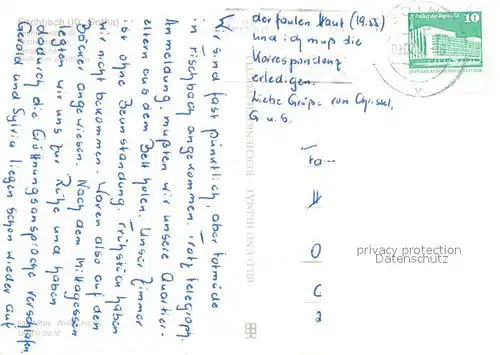 Fischbach (Kr. Gotha)
Wir sind fast pünktlich, aber todmüde
in Fischbach angekommen. Trotz telegraph.
Anmeldung mußten wir unsere Quartier-
eltern aus dem Bett holen. Unser Zimmer
ist ohne Beanstandung. Frühstück haben
wir nicht bekommen. Waren also auf den
Bäcker angewiesen. Nach dem Mittagessen
legten wir uns zur Ruhe und haben
dadurch die Eröffnungsansprache verschlafen.
Gerald und Sylvia liegen schon wieder auf
der faulen Haut (19.55)
und ich muß die
Korrespondenz
erledigen.
Liebe Grüße von Chrissel,
G. u. S.
BILD UND HEIMAT REICHENBACH
10
privacy protection
Datenschutz